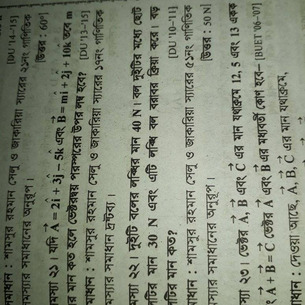 [DU '14-'15]
মাধান : শামসুর রহমান সেলু ও জাকারিয়া স্যারের ১১নং গাণিতিক
স্যার সমাধানের অনুরূপ। [উত্তর : 60°]
মস্যা ২১। যদি A = 2i + 3j – 5k এবং B = mi + 2j + 10k হলে m
র মান কত হলে ভেক্টরদ্বয় পরস্পরের উপর লম্ব হবে? [DU '13-'15]
মাধান : শামসুর রহমান সেলু ও জাকারিয়া স্যারের ১৭নং গাণিতিক
মস্যার সমাধান দ্রষ্টব্য।
মস্যা ২২। দুইটি বলের লব্ধির মান 40 N। বল দুইটির মধ্যে ছোট
টির মান 30 N এবং এটি লব্ধি বল বরাবর ক্রিয়া করে। বড়
টির মান কত? [DU '10-'11]
মাধান : শামসুর রহমান সেলু ও জাকারিয়া স্যারের ৫১নং গাণিতিক
মস্যার সমাধানের অনুরূপ। [উত্তর : 50 N]
মস্যা ২৩। ভেক্টর A, B এবং C এর মান যথাক্রমে 12, 5 এবং 13 একক
বং A + B = C ভেক্টর A এবং B এর মধ্যবর্তী কোণ হবে– [BUET '06-'07]
মাধান : দেওয়া আছে, A, B, C এর মান যথাক্রমে,